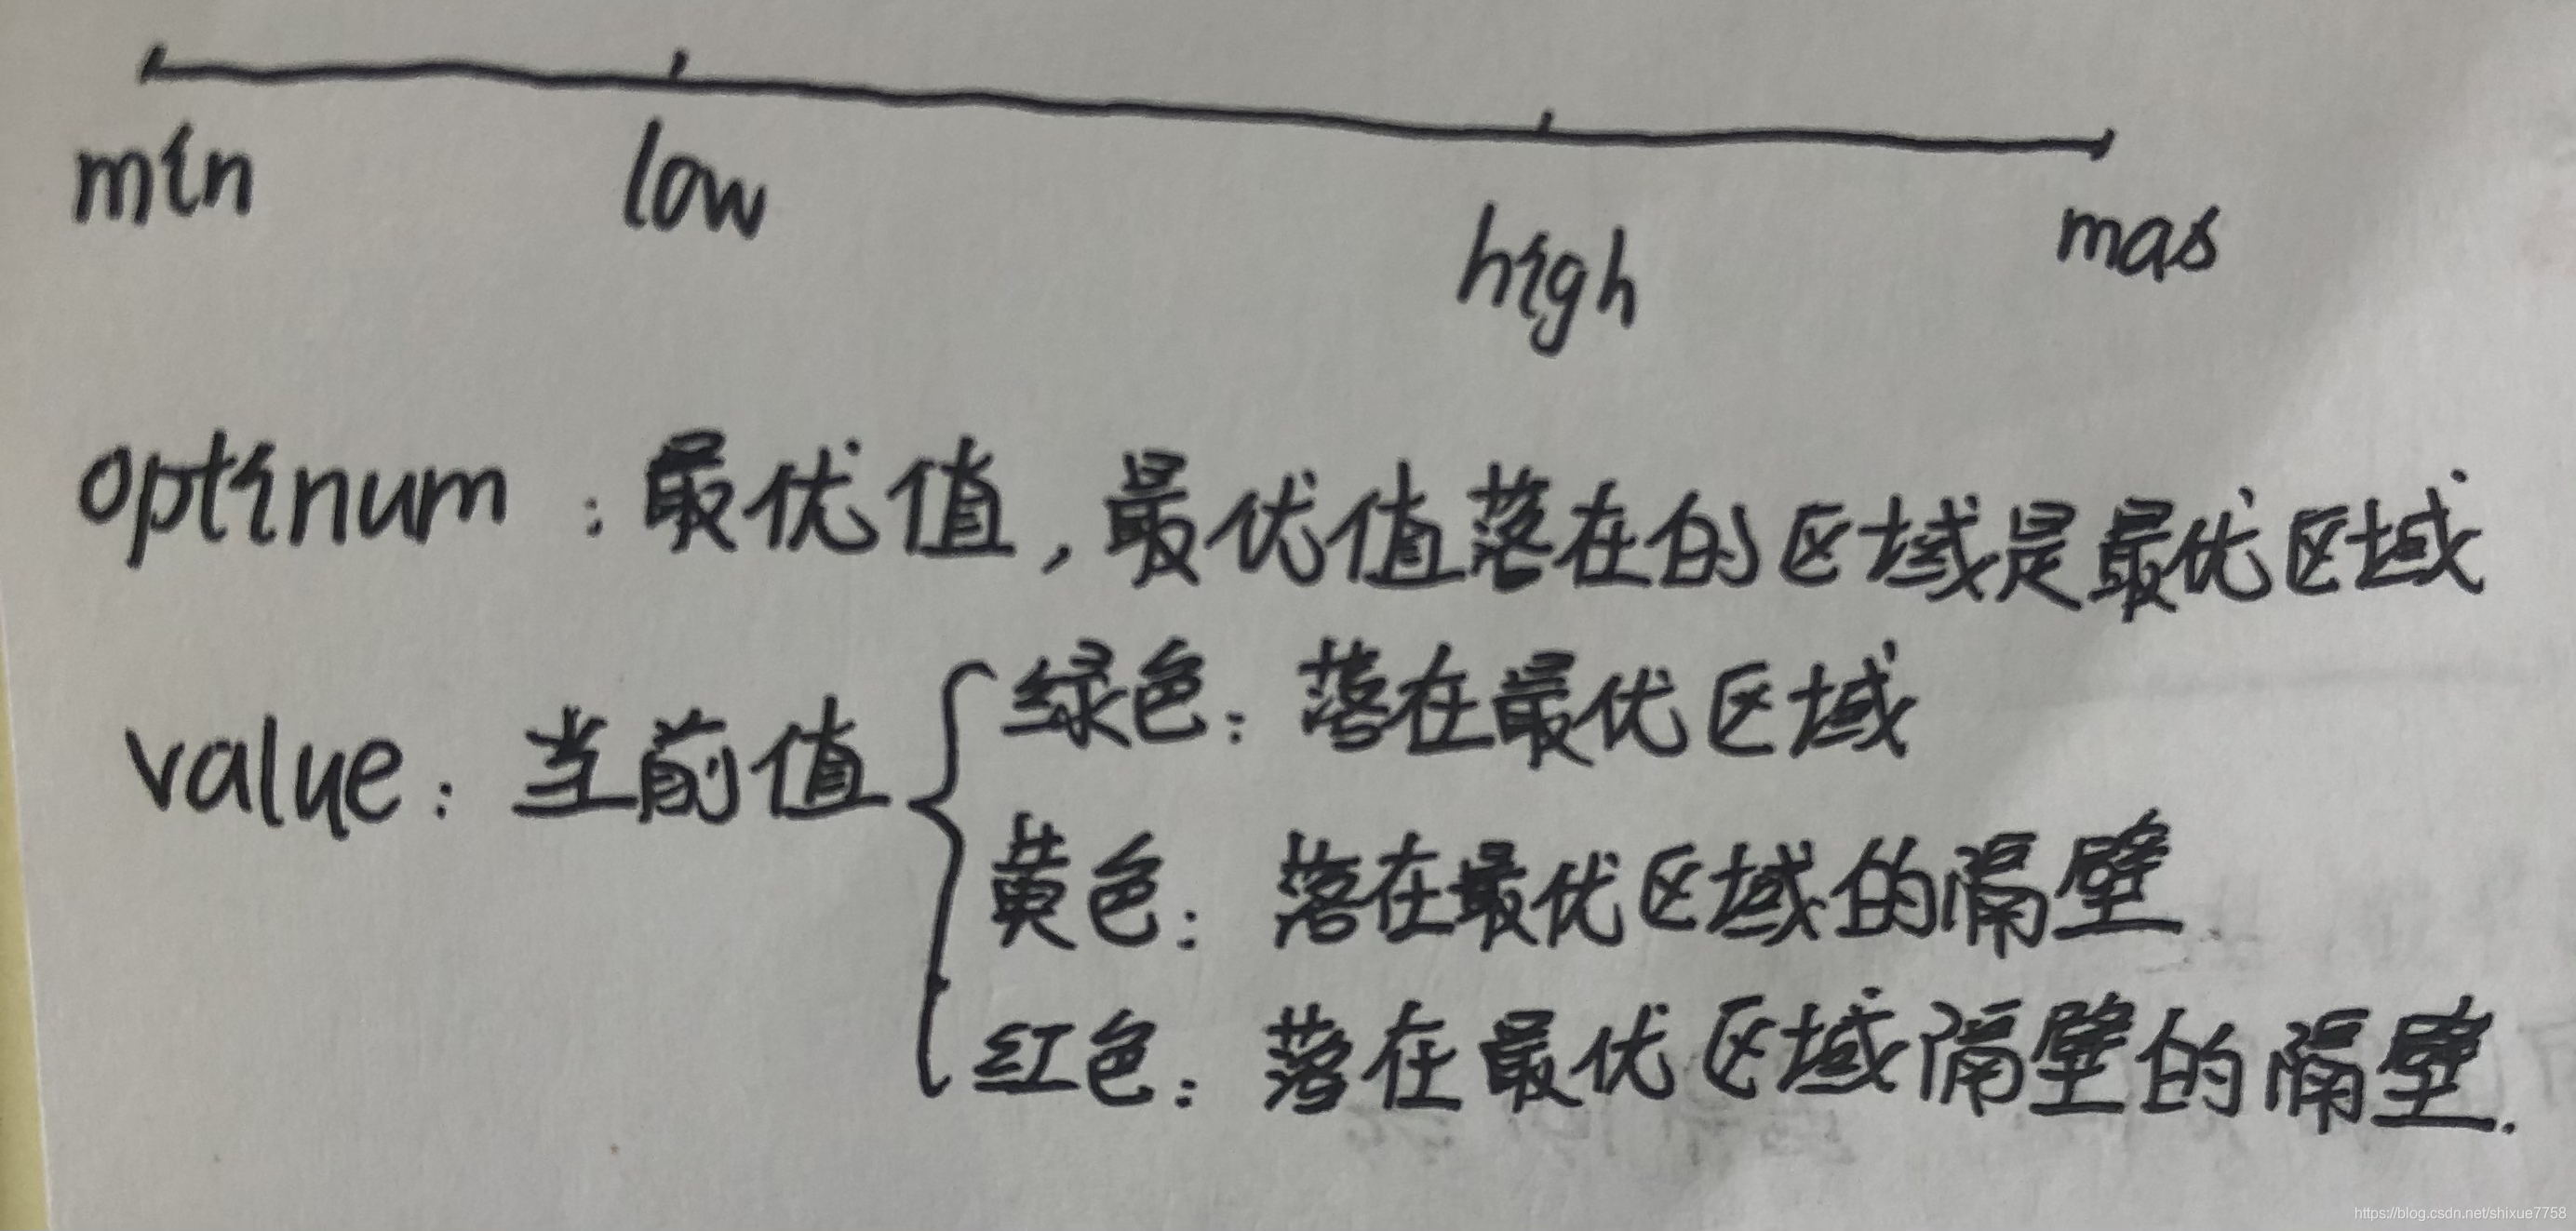 min low high mas
optinum：最优值，最优值落在的区域是最优区域
value：当前值
绿色：落在最优区域
黄色：落在最优区域的隔壁
红色：落在最优区域隔壁的隔壁.
https://blog.csdn.net/shixue7758